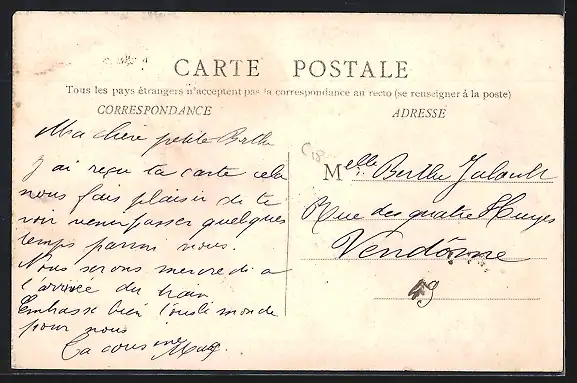 CARTE POSTALE
Tous les pays étrangers n'acceptent pas la correspondance au recto (se renseigner à la poste)
CORRESPONDANCE
ADRESSE
Ma chère petite Berthe
J'ai reçu ta carte cela
nous fais plaisir de te
voir venir passer quelques
temps parmi nous.
Nous serons mercredi a
l'arrivée du train
Embrasse bien tous le monde
pour nous
Ta cousine
Melle Berthe Jalault
Rue des quatre Huyes
Vendôme